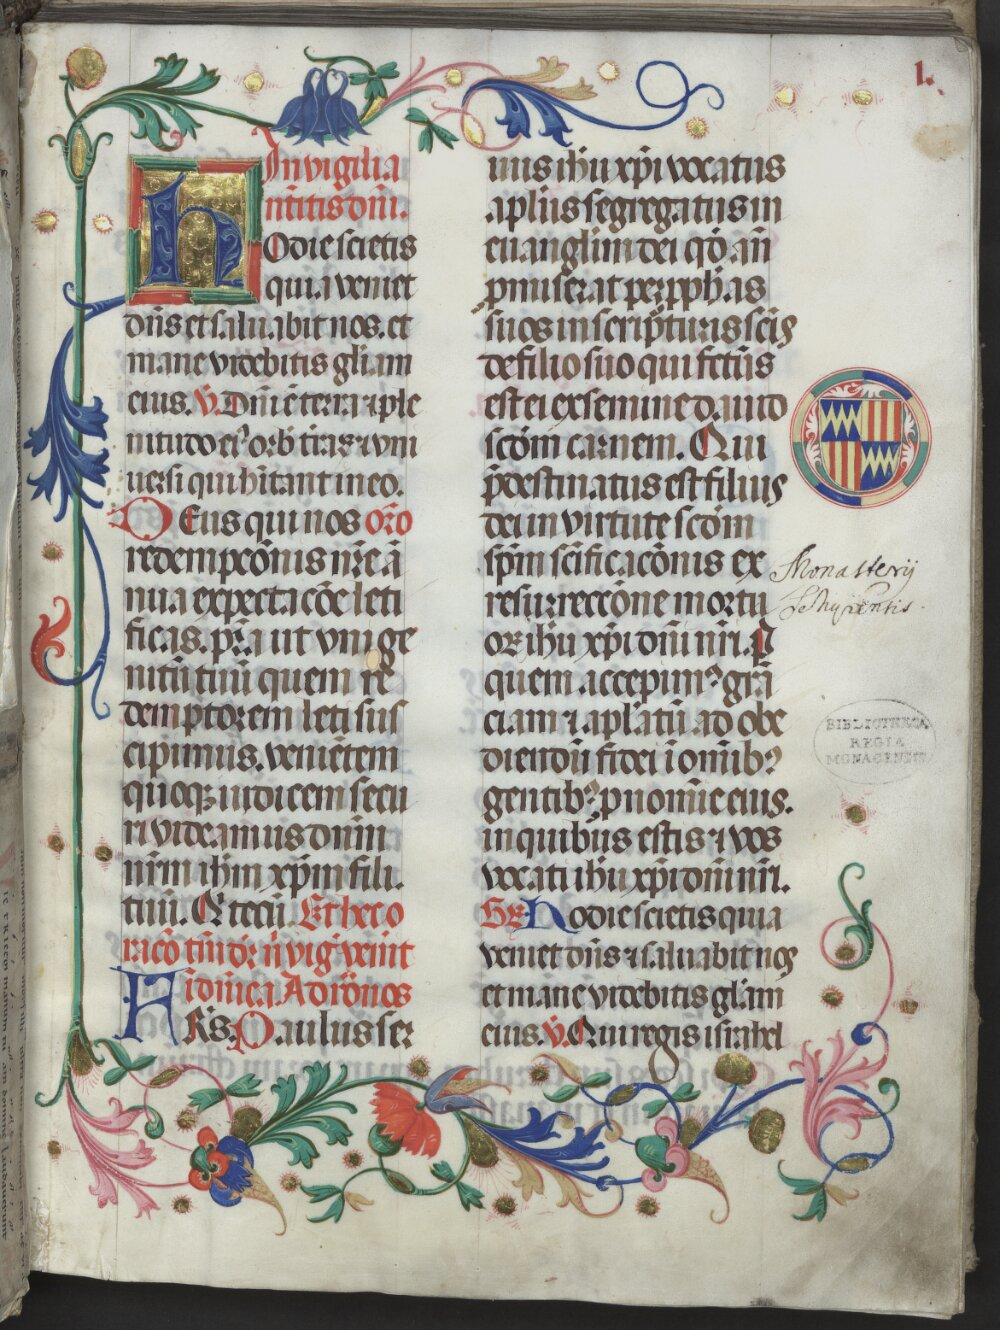 1.
In vigilia
natītis dnī.
Hodie scietis
quia veniet
dn̄s et saluabit nos. et
mane videbitis gl̄iam
eius. v̄. Dnī ē terra ⁊ ple
nitudo eiꝰ orb̄ tr̄ar ⁊ vni
uersi qui hītant in eo.
Deus qui nos oro
redempcōnis nr̄e ā
nua expectacōe leti
ficas. pr̄a ut vnige
nitū tuū quem re
demptorem leti sus
cipimus. venīetem
quoqꝫ iudicem secu
ri videamus dnm̄
nr̄m ih̄m xp̄m fili.
tuū. Q tecū Et hec o
Ad rōnos
FR̄s. Paulus ser
uus ih̄u xp̄i vocatus
apl̄us segregatus in
euangl̄ium dei qd̄ an̄
pmiserat per pph̄as
suos in scripturis scīs
de filio suo qui fctūs
est ei ex semine dauid
scdm̄ carnem. Qui
p̄destinatus est filius
dei in virtute scdm̄
sp̄m scīficacōnis ex
resurreccōne mortu
or ih̄u xp̄i dnī nr̄i. P
quem accepimꝰ grā
ciam ⁊ apl̄atū ad obe
diendū fidei ī omībꝰ
gentibꝰ p nomīe eius.
in quibus estis ⁊ vos
vocati ih̄u xp̄i dnī nr̄i.
Gr̄ Hodie scietis quia
veniet dn̄s ⁊ saluabit nos
et mane videbitis gl̄am
eius. v̄. Qui regis israhel
Monasterij
BIBLIOTHECA
REGIA
MONACENSIS